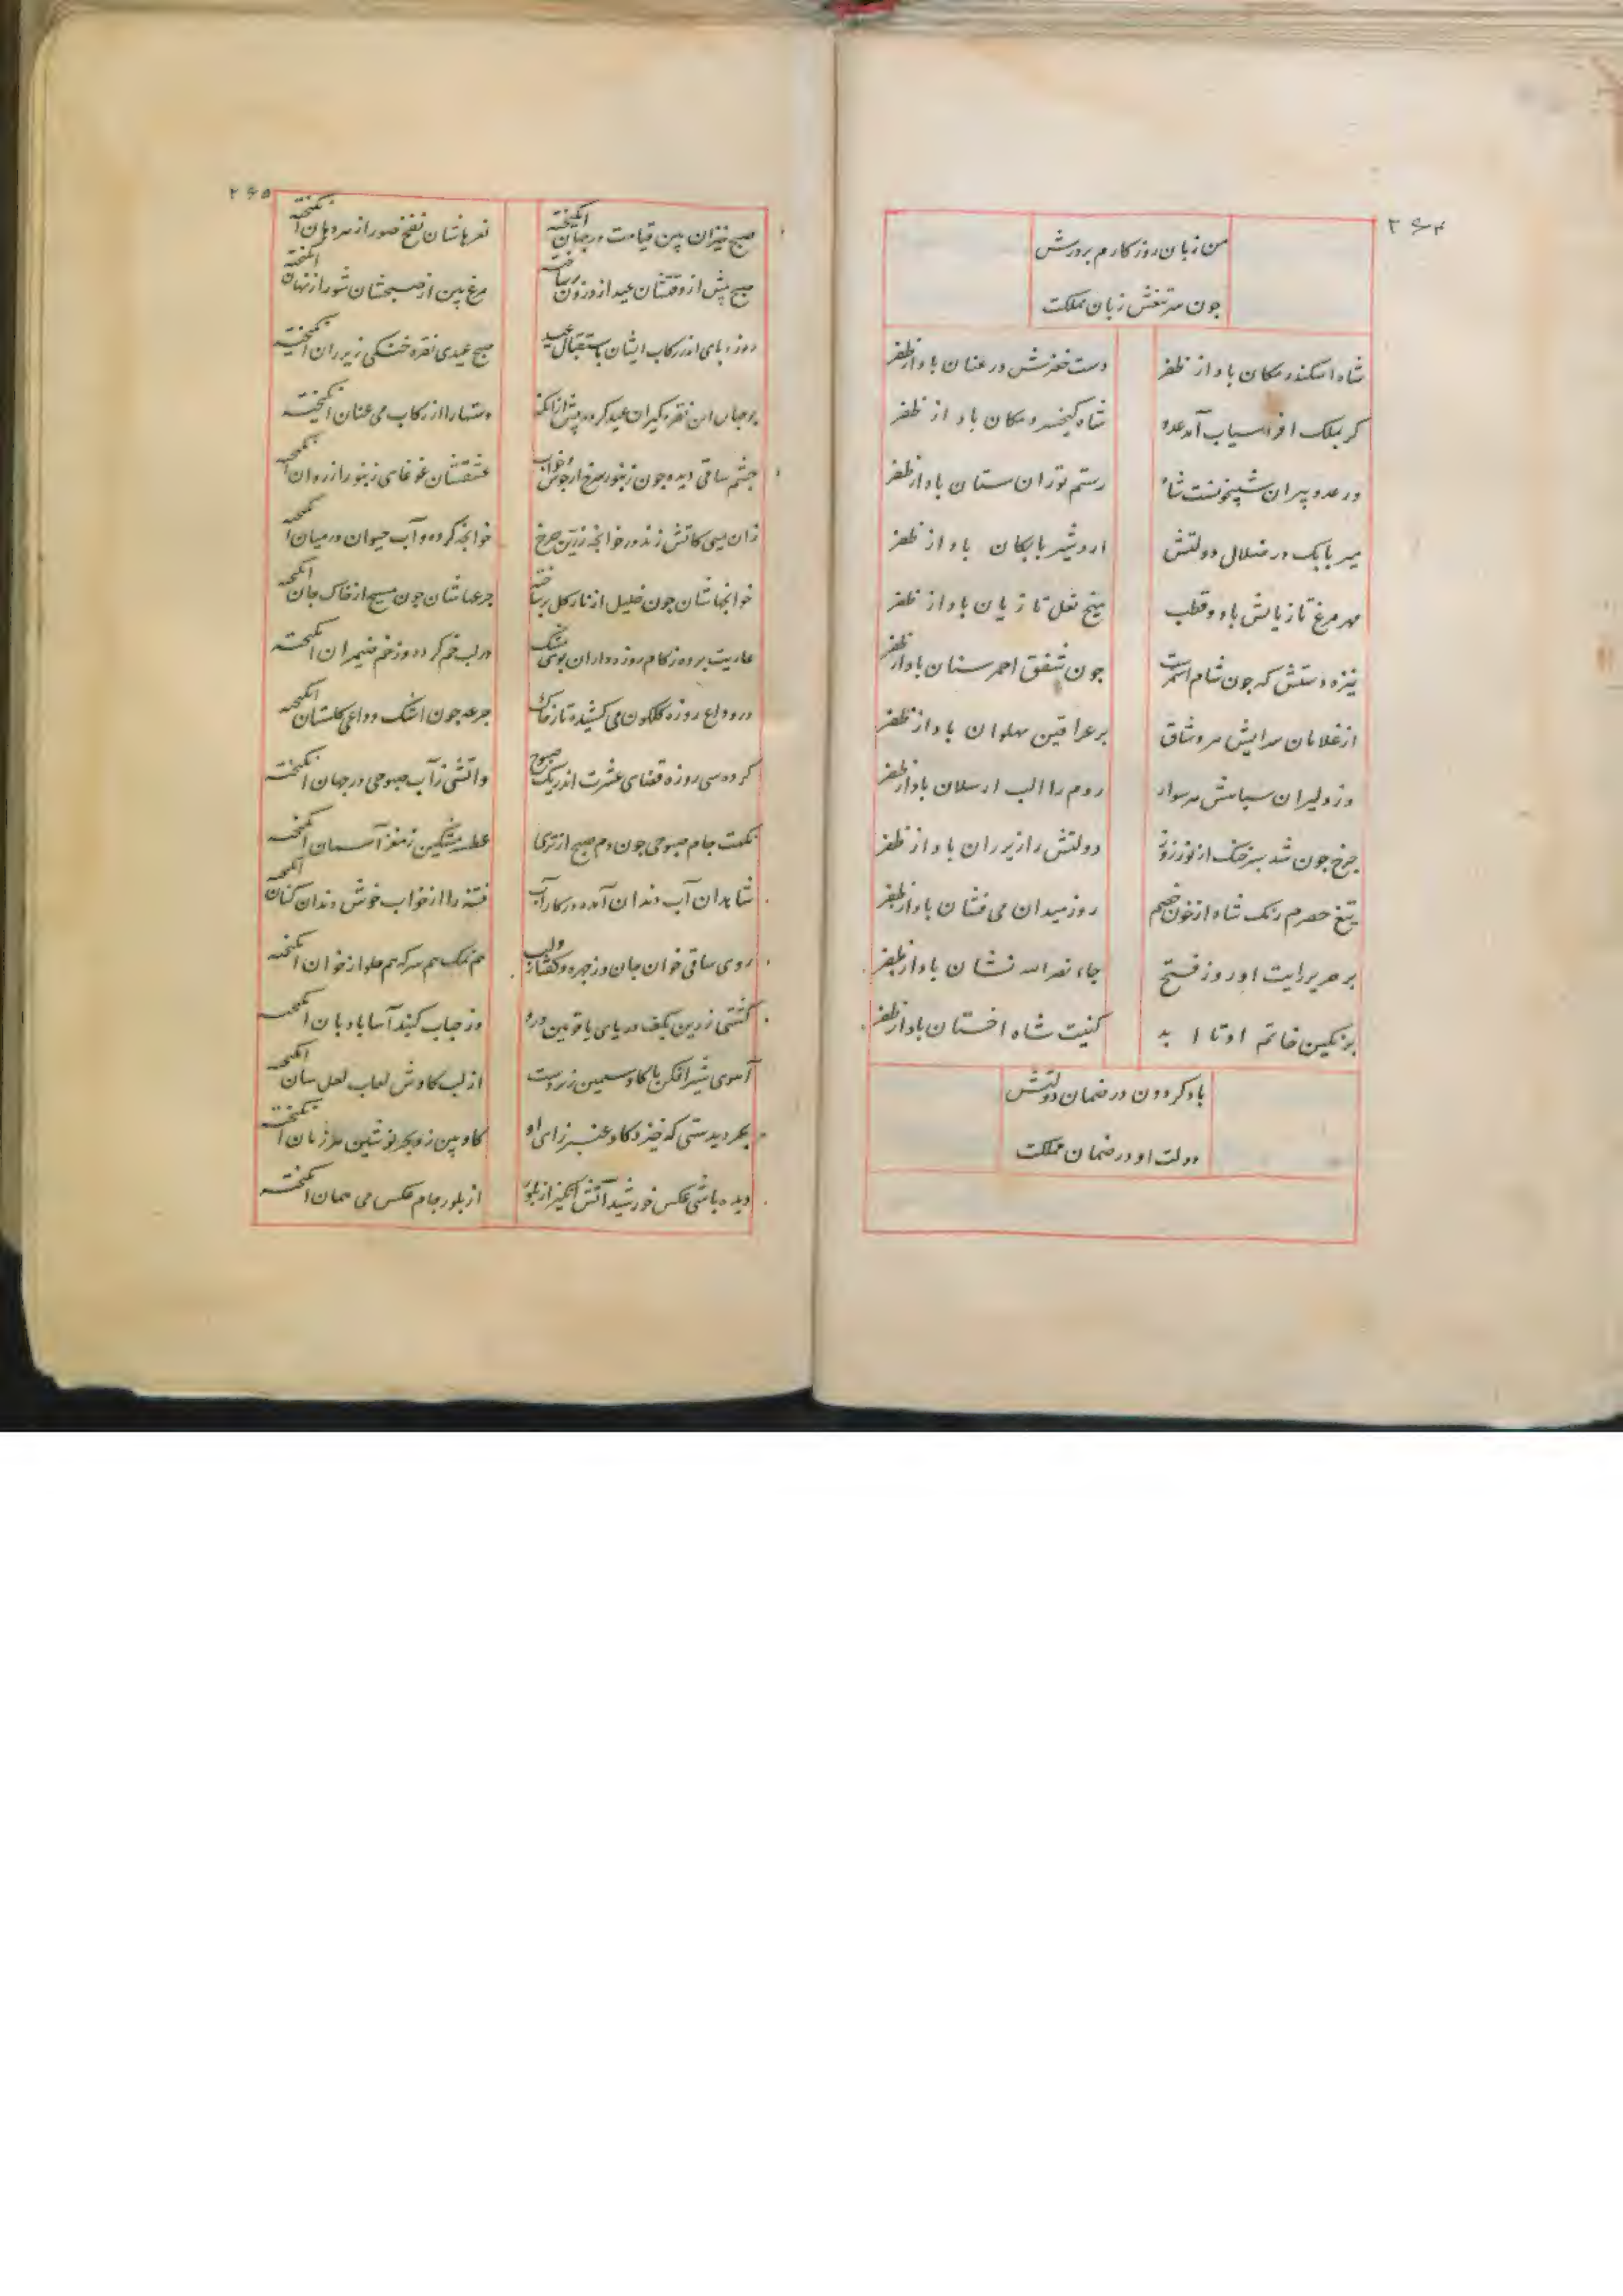 ۲۶۴
من زبان روزکارم بر درش
جون سر تیغش زبان مملکت
شاه اسکندر مکان باد از ظفر
دست خضرش در عنان باد از ظفر
کر بملک افراسیاب آمد عدو
شاه کیخسرو مکان باد از ظفر
ور عدو پیران شبیخونست شاه
رستم توران ستان باد از ظفر
میر بابک در ضلال دولتش
اردشیر بابکان باد از ظفر
مهر مرغ تازیانش باد و قطب
میخ نعل تازیان باد از ظفر
نیزه دستش که جون شام اسمرست
جون شفق احمر سنان باد از ظفر
از غلامان سرایش هر وشاق
بر عراقین پهلوان باد از ظفر
وز دلیران سپاهش هر سوار
روم را الب ارسلان باد از ظفر
جرخ جون شد سبز خنک از نور روز
دولتش را زیر ران باد از ظفر
تیغ حصرم رنک شاه از خون خصم
روز میدان می فشان باد از ظفر
بر حریر رایت او روز فتح
جاء نصر الله نشان باد از ظفر
بر نکین خاتم او تا ابد
کنیت شاه اخستان باد از ظفر
باد کردون در ضمان دولتش
دولت او در ضمان مملکت
۲۶۵
صبح خیزان بین قیامت در جهان انکیخته
نعرهاشان نفخ صور از هر دهان انکیخته
صبح پیش از وقتشان عید از درون برساخته
مرغ بین از صبحشان شور از نهان انکیخته
روزه پای اندر رکاب ایشان باستقبال عید
صبح عیدی نقره خنکی زیر ران انکیخته
بر جهان این نقره کیران عید کرده پیش از انک
دستها را از رکاب می عنان انکیخته
جشم ساقی دیده جون زنبور سرخ از جوش خواب
عشقشان غوغای زنبور از روان انکیخته
زان می کاتش زند در خوانجه زرین جرخ
خوانجه کرده و آب حیوان در میان انکیخته
خوانجهاشان جون خلیل از نار کل برساخته
جرعهاشان جون مسیح از خاک جان انکیخته
عاریت برده ز کام روزه داران بوی مشک
در لب خم کرده وز خم ضیمران انکیخته
در وداع روزه کلکون می کشیده تا ز خاک
جرعه جون اشک وداعی کلستان انکیخته
کرده سی روزه قضای عشرت اندر یک صبوح
واتشی ز آب صبوحی در جهان انکیخته
نکهت جام صبوحی جون دم صبح از تری
عطسه مشکین ز مغز آسمان انکیخته
شاهدان آب دندان آمده در کار آب
فتنه را از خواب خوش دندان کنان انکیخته
روی ساقی خوان جان وز جهره و کفتار و لب
هم نمک هم سرکه هم حلوا ز خوان انکیخته
کشتی زرین بکف دریای یاقوتین درو
وز حباب کنبد آسا بادبان انکیخته
آهوی شیر افکن ما کاو سیمین زیر دست
از لب کاوش لعاب لعل سان انکیخته
بحر دیدستی که خیزد کاو عنبر زای او
کاو بین زو بحر نوشین هر زمان انکیخته
دیده باشی عکس خورشید آتش انکیز از بلور
از بلور جام عکس می همان انکیخته